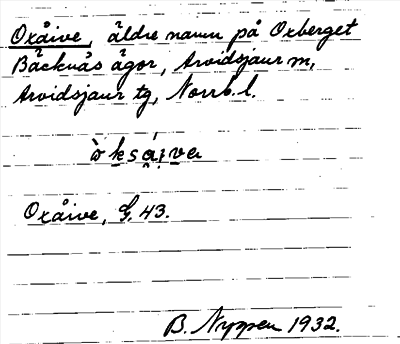 Oxåive, äldre namn på Oxberget
Bäcknäs ägor, Arvidsjaur m,
Arvidsjaur tg, Norrb. l.
ò̀ksái̯va
Oxåive, G. 43.
B. Nyppen 1932.